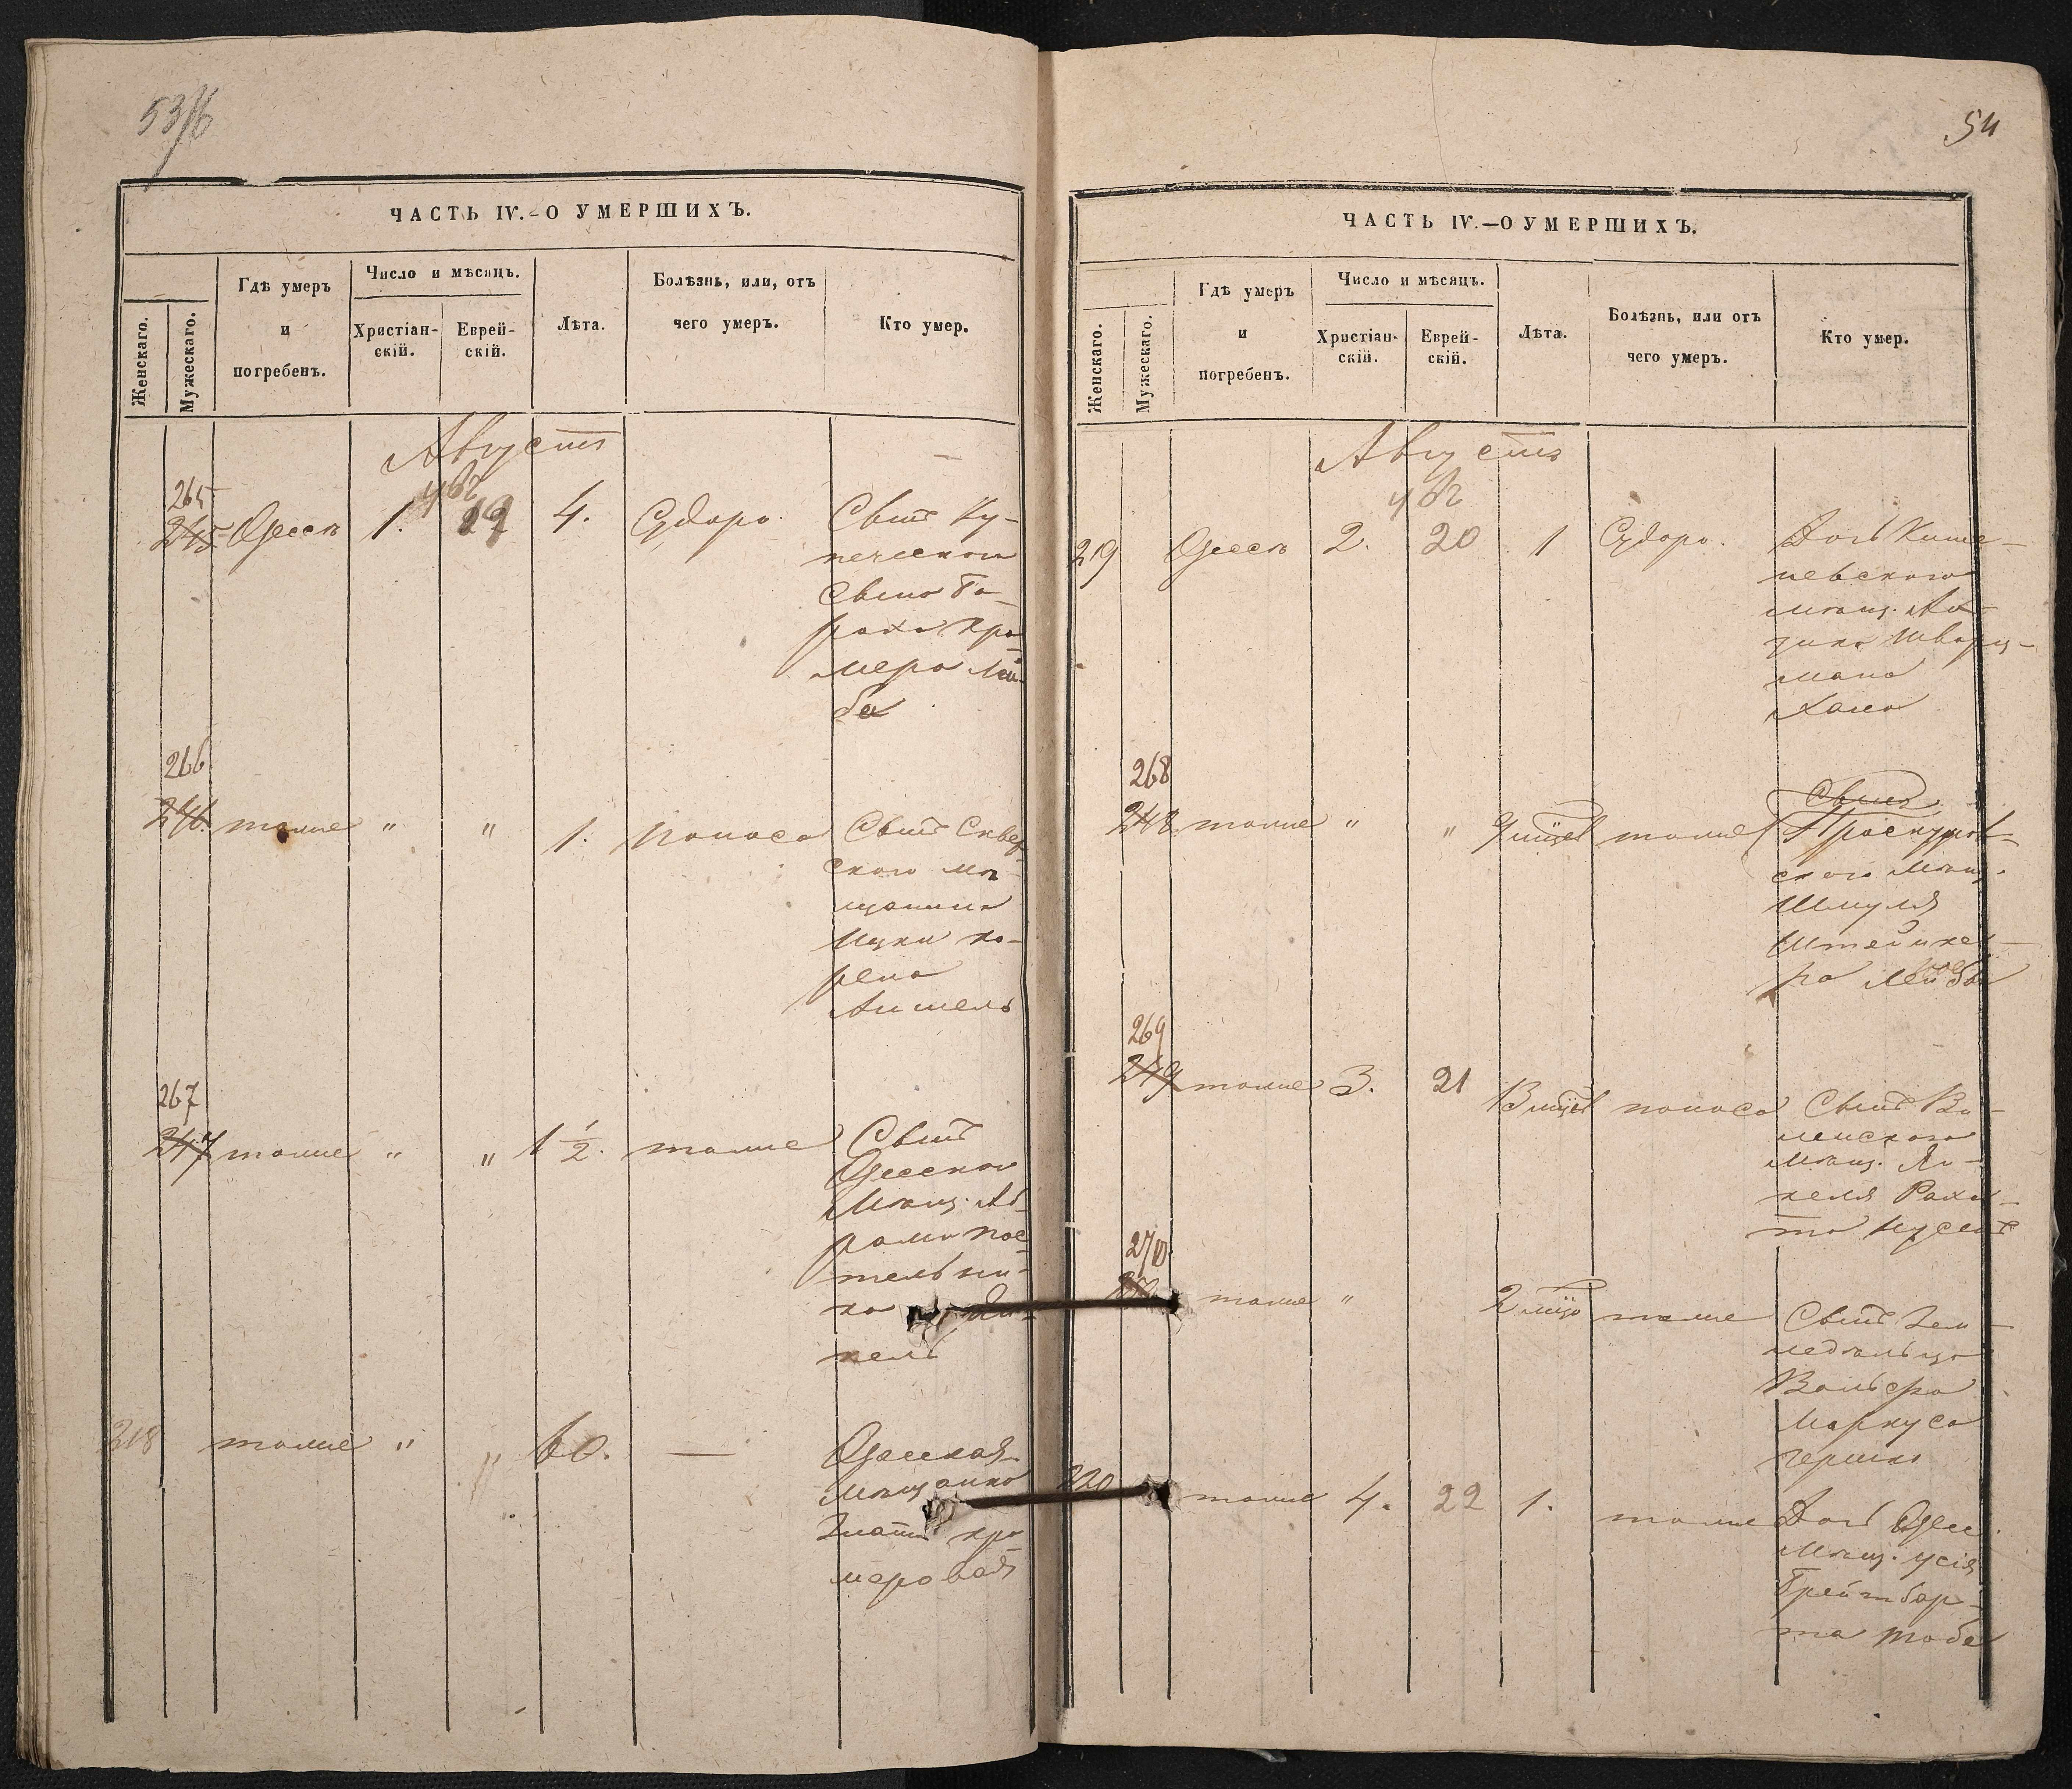 53/б
ЧАСТЬ IV.-О УМЕРШИХЪ.
Женскаго.
Мужескаго.
Гдѣ умеръ
и
погребенъ.
Число и мѣсяцъ.
Христіан-
скій.
Еврей-
скій.
Лѣта.
Болѣзнь, или, отъ
чего умеръ.
Кто умер.
Августъ
265
245 Одесѣ 1. 19 4. Судоро. Сынъ Ку-
печескаго
Сына Бо-
роха Кра
мера Лей-
ба
266
246. тоже " " 1. поноса Сынъ Сквер
ского мѣ
щанина
Ицки Ко-
рена
Аншель
267
247 тоже " " 1 1/2. тоже Сынъ
Одесско
Мѣщ. Аб-
рама Пос-
тельни-
ка
кель
218 тоже " " 60. — Одесская
Мѣщанка
Злата Кра
маровая
54
ЧАСТЬ IV.—О УМЕРШИХЪ.
Женскаго.
Мужескаго.
Гдѣ умеръ
и
погребенъ.
Число и мѣсяцъ.
Христіан-
скій.
Еврей-
скій.
Лѣта.
Болѣзнь, или отъ
чего умеръ.
Кто умер.
Августъ
219 Одесѣ 2. 20 1 Судоро. Дочь Кише-
невского
мѣщ.
Шварц-
мана
Хана
268
248. тоже " " 9 тоже Сынъ
Проскуров-
ского Мѣщ.
Шмуля
Штейнке-
ра Лейба
269
249 тоже 3. 21 поноса Сынъ Ви-
ленского
Мѣщ. Ян-
келя
270
тоже " 2 тоже Сынъ Зем-
ледѣльца
Вольфа
Маркуса
Гершко
220 тоже 4. 22 1. тоже Дочь Одес.
Мѣщ. Усія
Грейтбар-
та Тоба